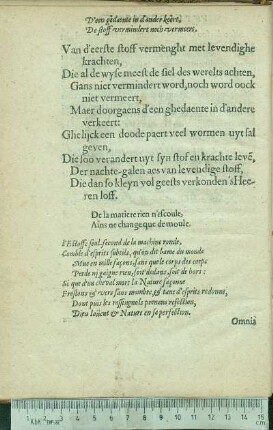 D'een gedaente in d'ander keert,
De stoff vermindert noch vermeert.
Van d'eerste stoff vermenght met levendighe
krachten,
Die al de wyse meest de siel des werelts achten,
Gans niet vermindert word, noch word oock
niet vermeert,
Maer doorgaens d'een ghedaente in d'andere
verkeert:
Ghelijck een doode paert veel wormen uyt sal
geven,
Die soo verandert uyt syn stof en krachte levē,
Der nachte-galen aes van levendige stoff,
Die dan so kleyn vol geests verkonden 's Hee-
ren loff.
De la matiere rien n'escoule,
Ains ne change que de moule.
L'Estoffe seul second de la machine ronde,
Comblé d'esprits subtils, qu'on dit l'ame du monde
Mue en mille façons, sans que le corps des corps
Perde ny gaigne rien, soit dedans, soit de hors:
Si que d'un cheval mort la Nature façonne
Freslons vers sans nombre, & tant d'esprits redonne,
Dont puis les rossignols prennans refection,
Dieu loüent & Nature en sa perfection.
Omnia